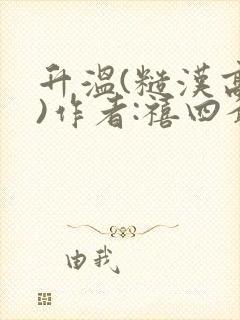 升温(糙漢高
)作者:禧四
由我